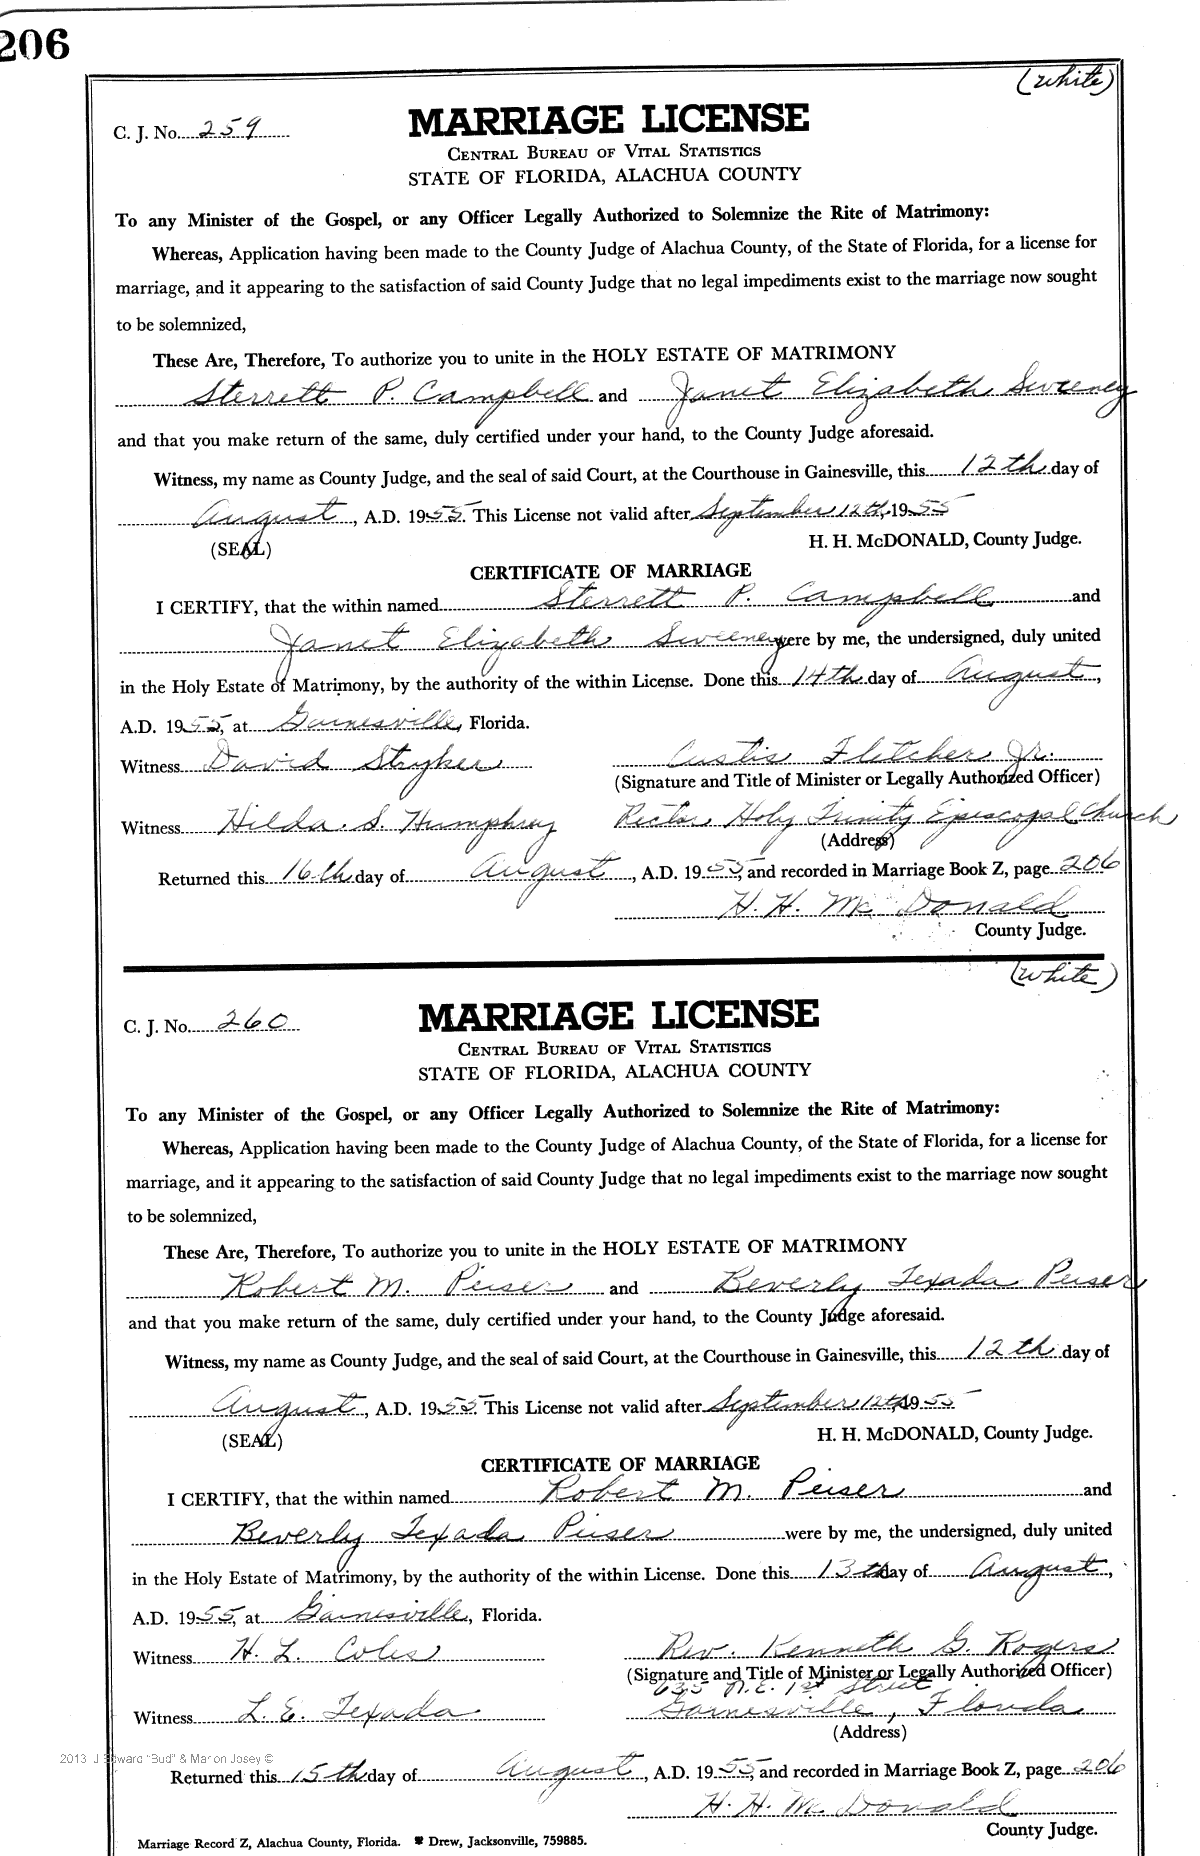 206
(White)
C. J. No. 259
MARRIAGE LICENSE
CENTRAL BUREAU OF VITAL STATISTICS
STATE OF FLORIDA, ALACHUA COUNTY
To any Minister of the Gospel, or any Officer Legally Authorized to Solemnize the Rite of Matrimony:
Whereas, Application having been made to the County Judge of Alachua County, of the State of Florida, for a license for
marriage, and it appearing to the satisfaction of said County Judge that no legal impediments exist to the marriage now sought
to be solemnized,
These Are, Therefore, To authorize you to unite in the HOLY ESTATE OF MATRIMONY
Sterrett P. Campbell and Janet Elizabeth Sweeney
and that you make return of the same, duly certified under your hand, to the County Judge aforesaid.
Witness, my name as County Judge, and the seal of said Court, at the Courthouse in Gainesville, this 12th day of
August, A.D. 1955. This License not valid after September 12th, 1955
(SEAL) H. H. McDONALD, County Judge.
CERTIFICATE OF MARRIAGE
I CERTIFY, that the within named Sterrett P. Campbell and
Janet Elizabeth Sweeney were by me, the undersigned, duly united
in the Holy Estate of Matrimony, by the authority of the within License. Done this 14th day of August,
A.D. 1955, at Gainesville, Florida.
Witness David Stryker Custis Fletcher Jr.
(Signature and Title of Minister or Legally Authorized Officer)
Witness Hilda S. Humphrey Rector Holy Trinity Episcopal Church
(Address)
Returned this 16th day of August, A.D. 1955, and recorded in Marriage Book Z, page 206
H. H. McDonald
County Judge.
(White)
C. J. No. 260
MARRIAGE LICENSE
CENTRAL BUREAU OF VITAL STATISTICS
STATE OF FLORIDA, ALACHUA COUNTY
To any Minister of the Gospel, or any Officer Legally Authorized to Solemnize the Rite of Matrimony:
Whereas, Application having been made to the County Judge of Alachua County, of the State of Florida, for a license for
marriage, and it appearing to the satisfaction of said County Judge that no legal impediments exist to the marriage now sought
to be solemnized,
These Are, Therefore, To authorize you to unite in the HOLY ESTATE OF MATRIMONY
Robert M. Peiser and Beverly Texada Peiser
and that you make return of the same, duly certified under your hand, to the County Judge aforesaid.
Witness, my name as County Judge, and the seal of said Court, at the Courthouse in Gainesville, this 12th day of
August, A.D. 1955. This License not valid after September 12th, 1955
(SEAL) H. H. McDONALD, County Judge.
CERTIFICATE OF MARRIAGE
I CERTIFY, that the within named Robert M. Peiser and
Beverly Texada Peiser were by me, the undersigned, duly united
in the Holy Estate of Matrimony, by the authority of the within License. Done this 13th day of August,
A.D. 1955, at Gainesville, Florida.
Witness H. L. Coles Rev. Kenneth G. Rogers
(Signature and Title of Minister or Legally Authorized Officer)
635 N.E. 1st Street
Witness L. E. Texada Gainesville, Florida
(Address)
2013 J Edward "Bud" & Marion Josey ©
Returned this 15th day of August, A.D. 1955, and recorded in Marriage Book Z, page 206
H. H. McDonald
County Judge.
Marriage Record Z, Alachua County, Florida. Drew, Jacksonville, 759885.